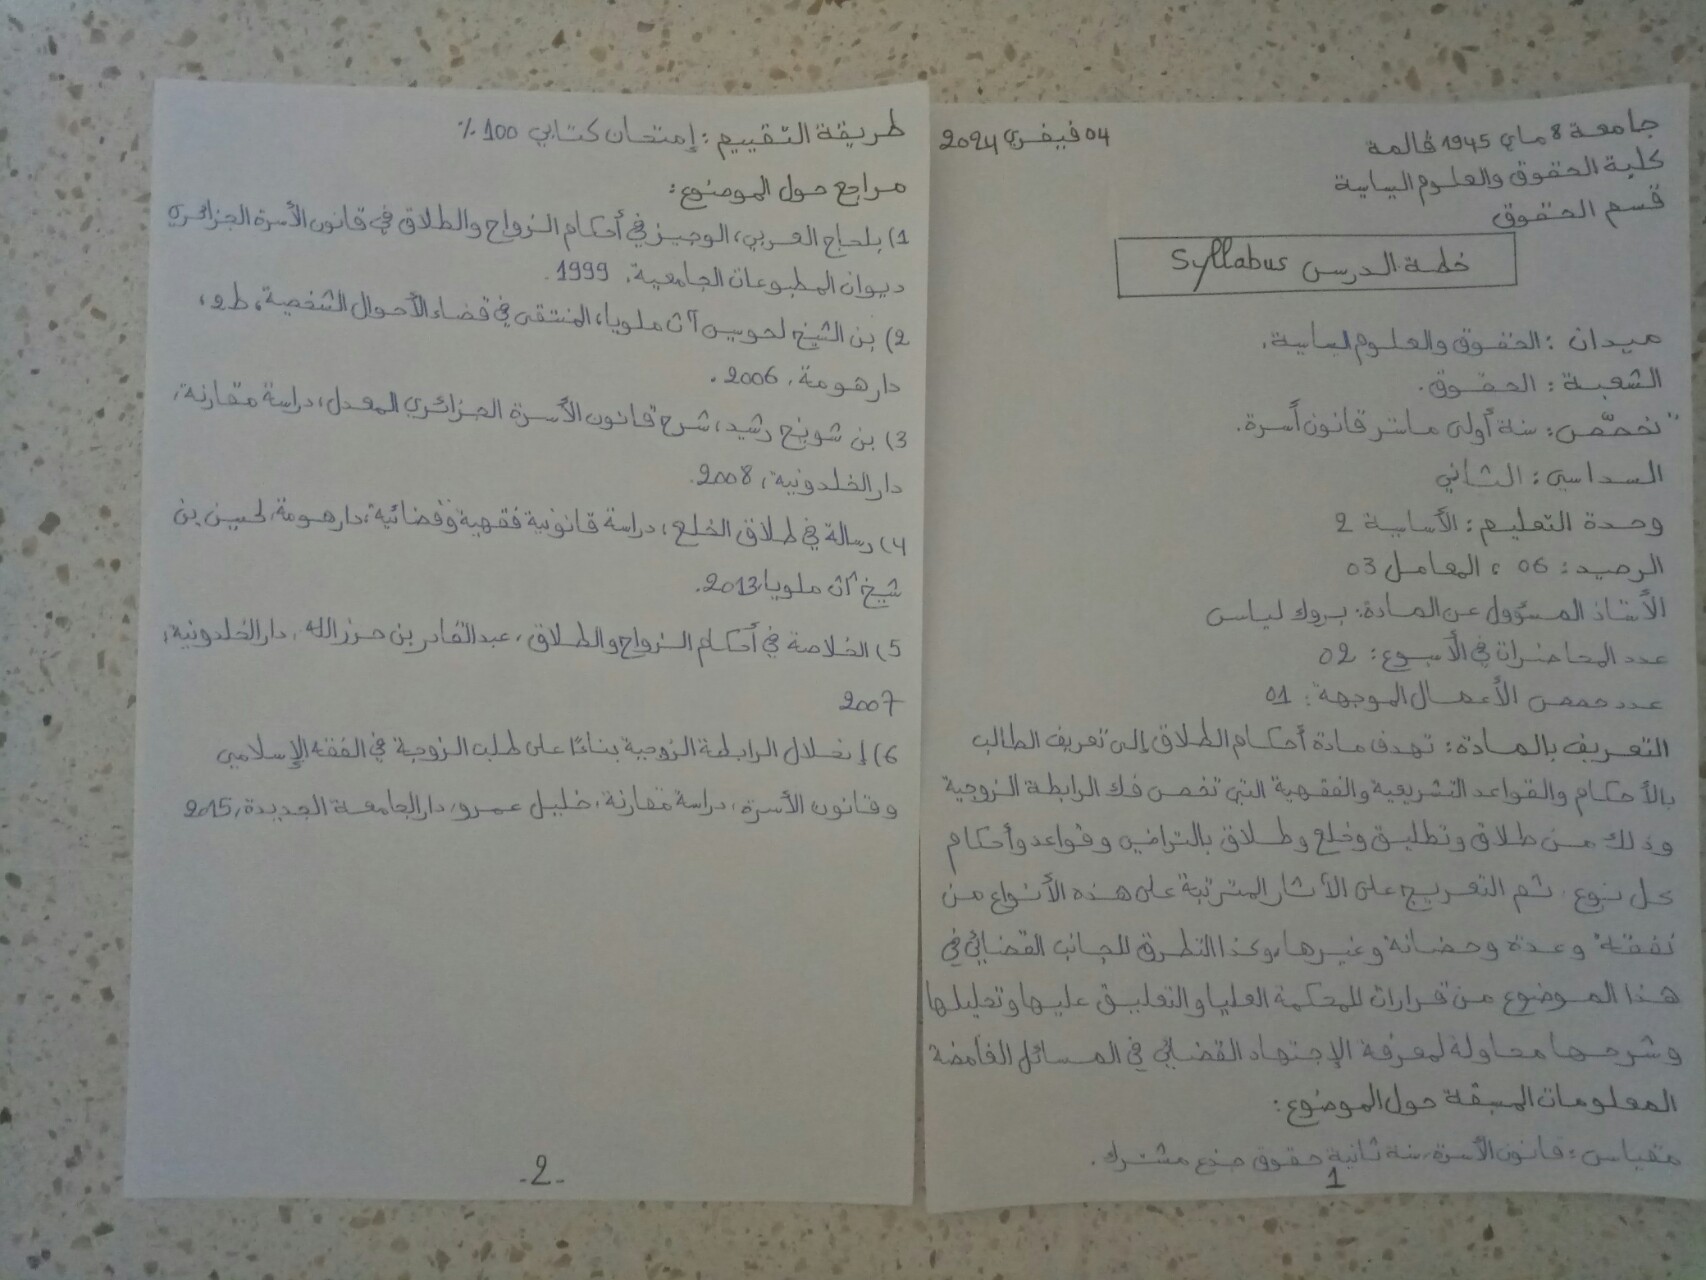 جامعة 8 ماي 1945 قالمة
04 فيفري 2024
كلية الحقوق والعلوم السياسية
قسم الحقوق
خطة الدرس Syllabus
ميدان : الحقوق والعلوم السياسية.
الشعبة : الحقوق.
تخصّص : سنة أولى ماستر قانون أسرة.
السداسي : الثاني
وحدة التعليم : الأساسية 2
الرصيد : 06 ، المعامل 03
الأستاذ المسؤول عن المادة : بروك لياس
عدد المحاضرات في الأسبوع : 02
عدد حصص الأعمال الموجهة : 01
التعريف بالمادة : تهدف مادة أحكام الطلاق إلى تعريف الطالب
بالأحكام والقواعد التشريعية والفقهية التي تخص فك الرابطة الزوجية
وذلك من طلاق وتطليق وخلع وطلاق بالتراضي وقواعد وأحكام
كل نوع . ثم التعريج على الآثار المترتبة على هذه الأنواع من
نفقة وعدة وحضانة وغيرها، وكذا التطرق للجانب القضائي في
هذا الموضوع من قرارات للمحكمة العليا والتعليق عليها وتحليلها
وشرحها محاولة لمعرفة الإجتهاد القضائي في المسائل الغامضة
المعلومات المسبقة حول الموضوع :
مقياس : قانون الأسرة، سنة ثانية حقوق جذع مشترك .
1
طريقة التقييم : إمتحان كتابي 100 %
مراجع حول الموضوع :
1) بلحاج العربي، الوجيز في أحكام الزواج والطلاق في قانون الأسرة الجزائري
ديوان المطبوعات الجامعية، 1999 .
2) بن الشيخ لحوسين آث ملويا، المنتقى في قضاء الأحوال الشخصية، ط 2،
دار هومة، 2006 .
3) بن شويخ رشيد، شرح قانون الأسرة الجزائري المعدل، دراسة مقارنة،
دار الخلدونية، 2008.
4) رسالة في طلاق الخلع ، دراسة قانونية فقهية وقضائية، دار هومة، لحسين بن
شيخ آث ملويا، 2013.
5) الخلاصة في أحكام الزواج والطلاق ، عبد القادر بن حرز الله ، دار الخلدونية،
2007
6) إنحلال الرابطة الزوجية بناءًا على طلب الزوجة في الفقه الإسلامي
وقانون الأسرة، دراسة مقارنة، خليل عمرو، دار الجامعة الجديدة، 2015
-2-